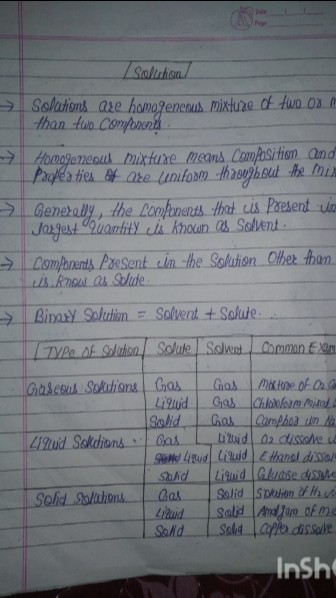 Date
Page
Solution
→ Solutions are homogeneous mixture of two or
than two Components.
→ Homogeneous mixture means Composition and
Properties of are uniform throughout the mix
→ Generally, the Components that is Present in
largest quantity is known as Solvent.
→ Components Present in the Solution Other than
is know as Solute.
→ Binary Solution = Solvent + Solute.
Type of Solution Solute Solvent Common Exam
Gaseous Solutions Gas Gas Mixture of O2
Liquid Gas Chloroform mixed
Solid Gas Camphor in
Liquid Solutions Gas Liquid O2 dissolve
Liquid Liquid Ethanol dissol
Solid Liquid Glucose dissolve
Solid Solutions Gas Solid Solution of H2
Liquid Solid Amalgam of
Solid Solid Copper dissolve
InSh